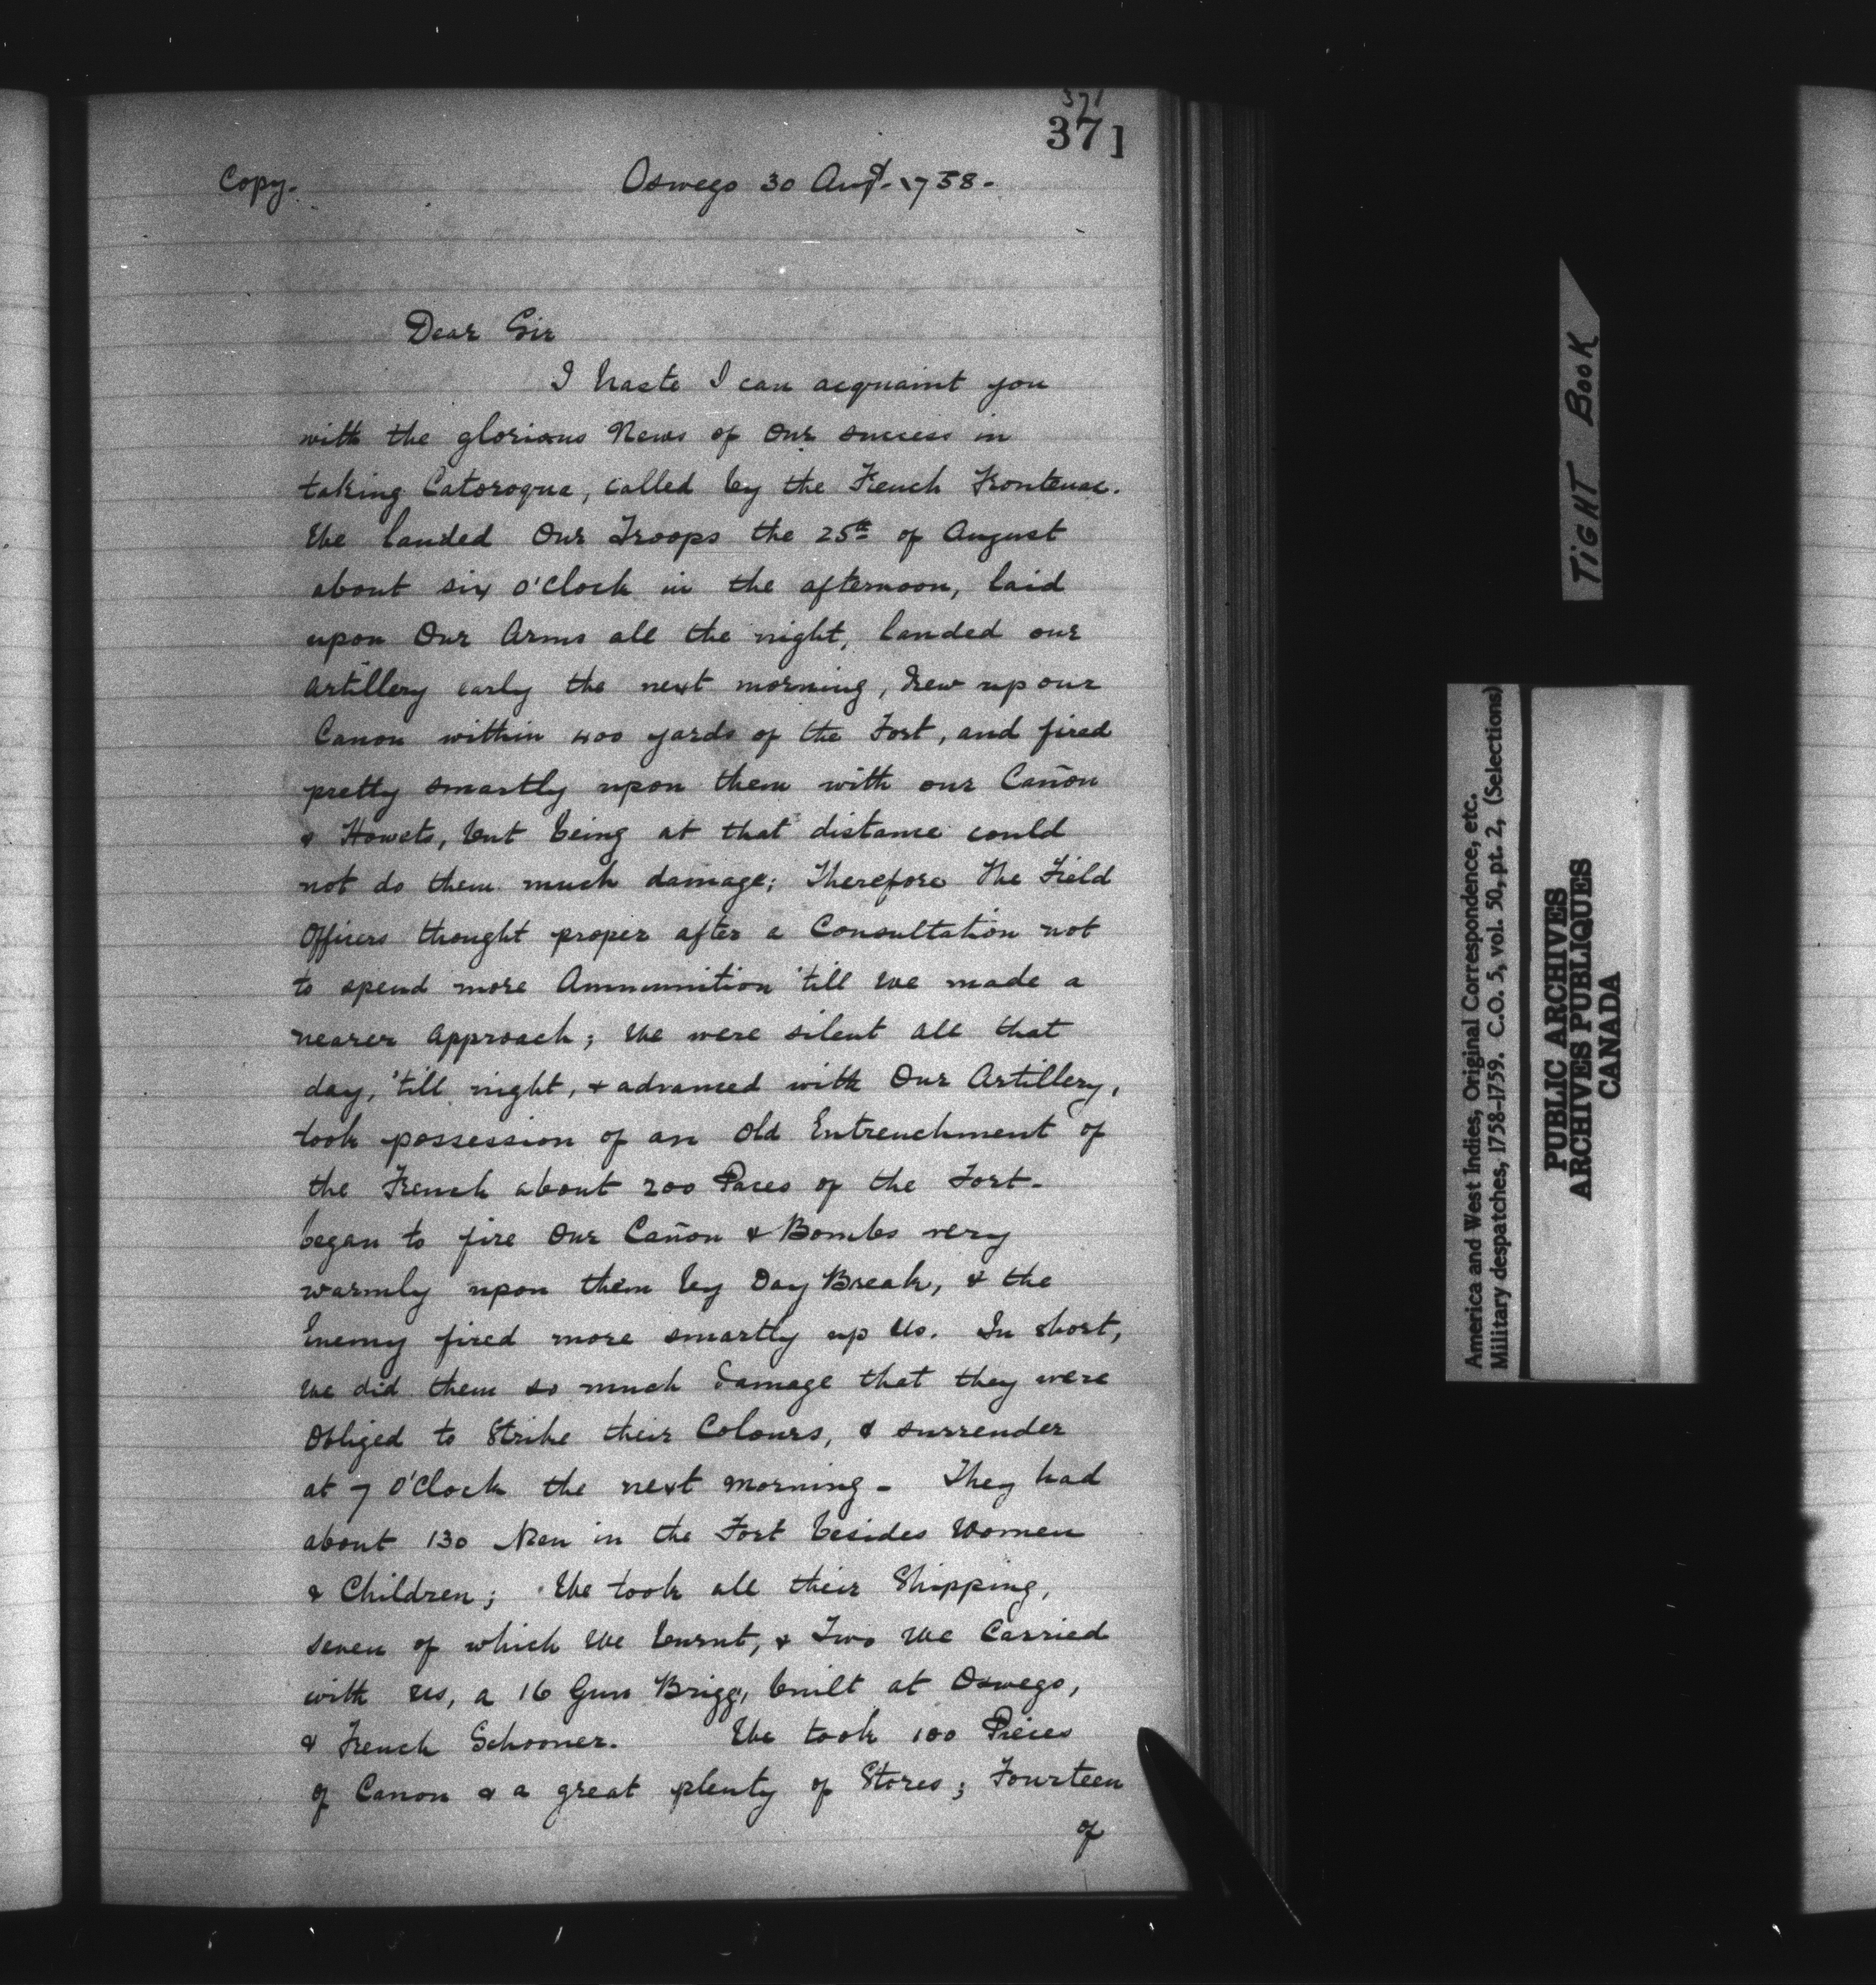 371
371
Copy.
Oswego 30 Augt. 1758.
Dear Sir
I haste I can acquaint you
with the glorious News of Our success in
taking Catoroque, called by the French Frontenac.
We landed Our Troops the 25th of August
about six o'Clock in the afternoon, laid
upon Our Arms all the night, landed our
Artillery early the next morning, drew up our
Canon within 400 yards of the Fort, and fired
pretty smartly upon them with our Cañon
& Howets, but being at that distance could
not do them much damage; Therefore The Field
Officers thought proper after a Consultation not
to spend more Ammunition 'till we made a
nearer Approach; We were silent all that
day, 'till night, & advanced with Our Artillery,
took possession of an Old Entrenchment of
the French about 200 Paces of the Fort-
began to fire Our Cañon & Bombs very
warmly upon them by Day Break, & the
Enemy fired more smartly up Us. In short,
We did them so much damage that they were
Obliged to Strike their Colours, & surrender
at 7 O'Clock the next Morning - They had
about 130 Men in the Fort besides Women
& Children; We took all their Shipping,
seven of which We burnt, & Two We Carried
with us, a 16 Gun Brigg, built at Oswego,
& French Schooner. We took 100 Pieces
of Canon & a great plenty of Stores; Fourteen
of
TIGHT BOOK
America and West Indies, Original Correspondence, etc.
Military despatches, 1758-1759. C.O. 5, vol. 50, pt. 2, (Selections)
PUBLIC ARCHIVES
ARCHIVES PUBLIQUES
CANADA